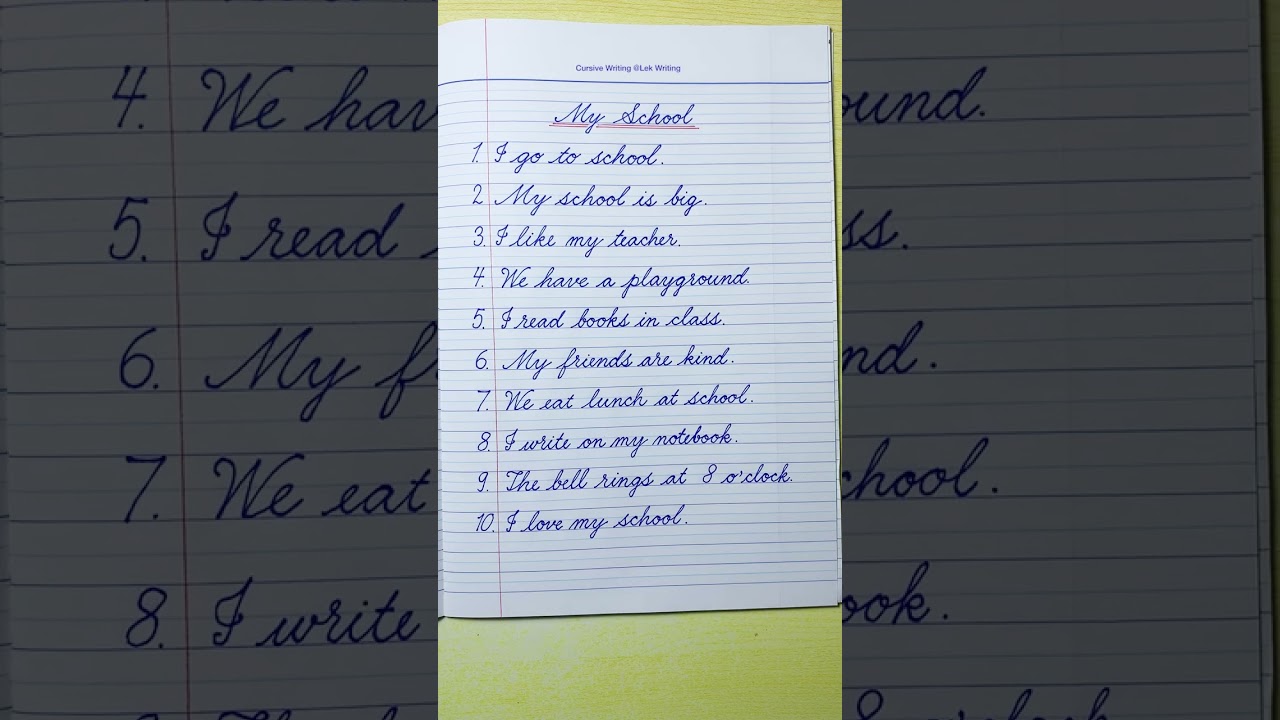 Cursive Writing @Lek Writing
My School
1. I go to school.
2 My school is big.
3. I like my teacher.
4. We have a playground.
5. I read books in class.
6. My friends are kind.
7. We eat lunch at school.
8. I write on my notebook.
9. The bell rings at 8 o'clock.
10. I love my school.